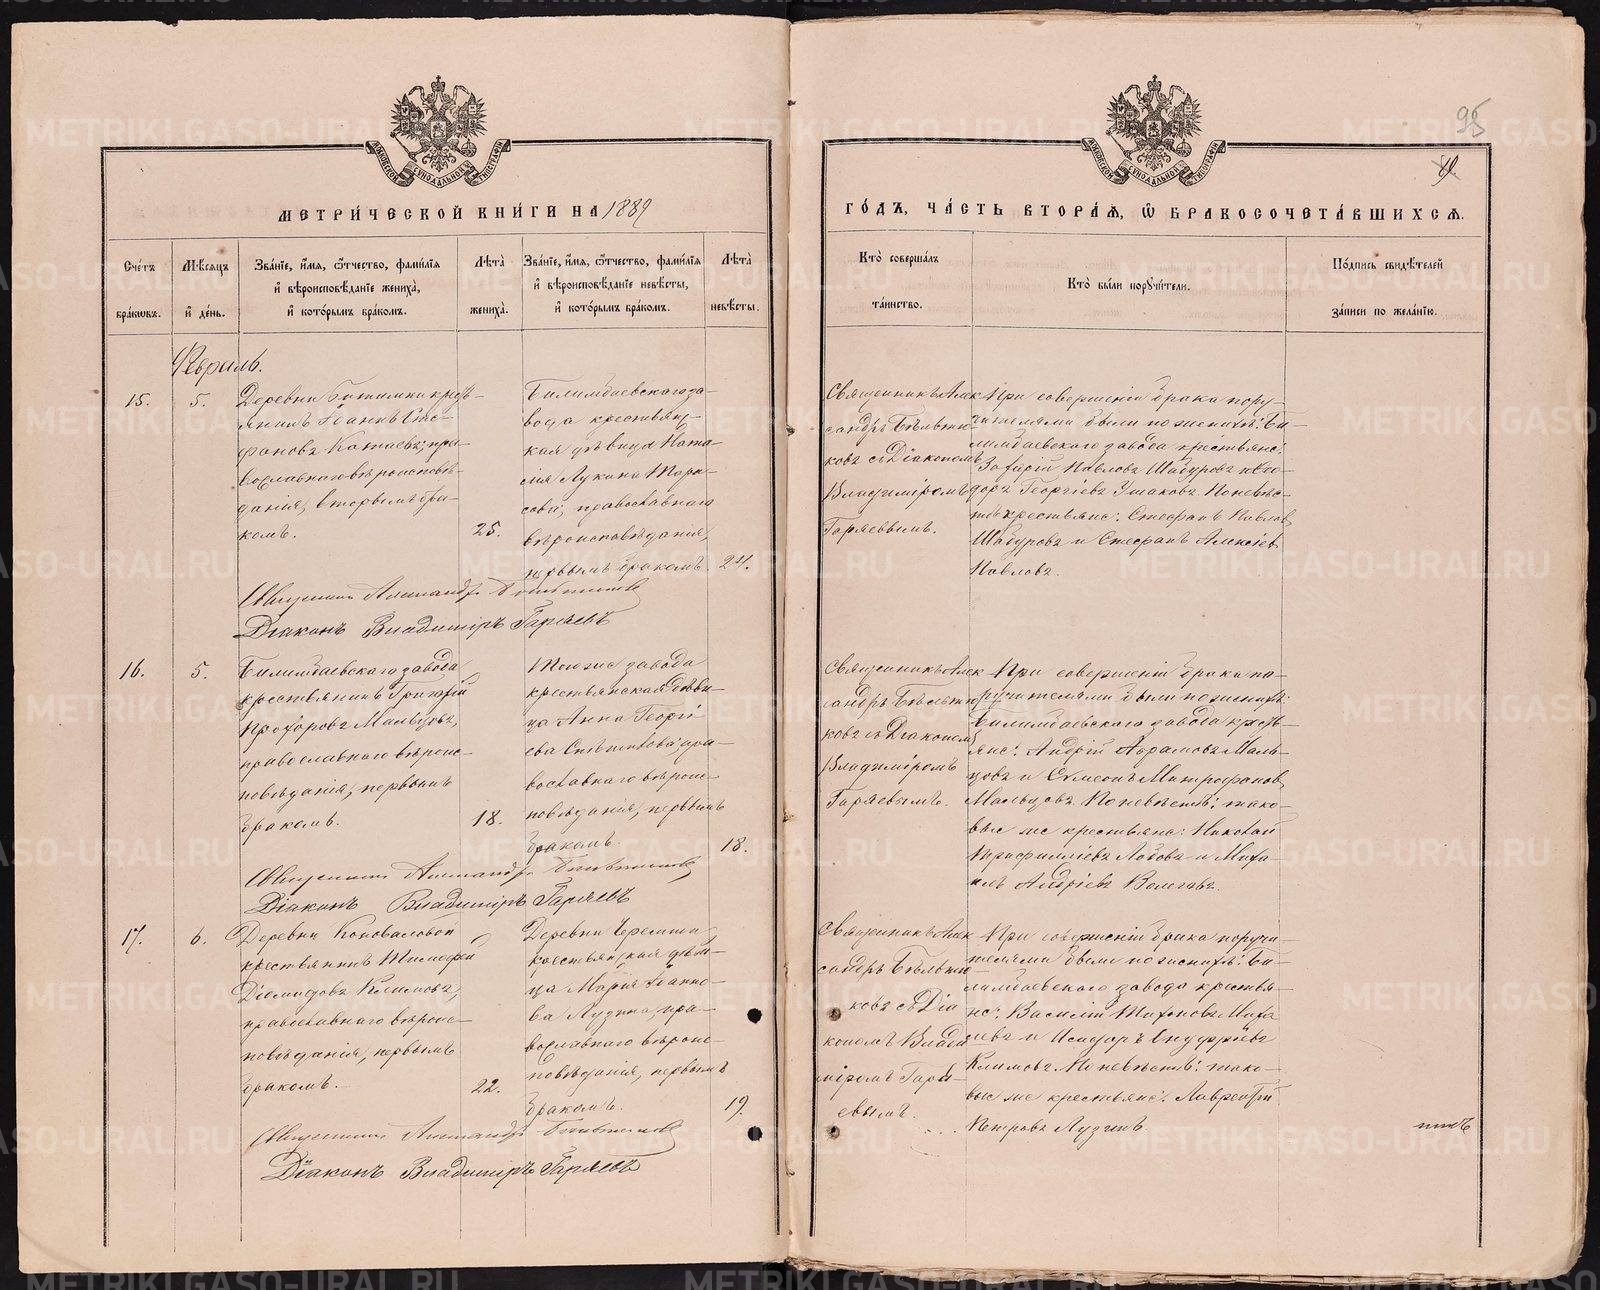 95
МОСКОВСКОЙ СѴНОДАЛЬНОЙ ТИПОГРАФІИ
МОСКОВСКОЙ СѴНОДАЛЬНОЙ ТИПОГРАФІИ
МЕТРИ́ЧЕСКОЙ КНИ́ГИ НА 1889
ГО́ДЪ, ЧА́СТЬ ВТОРА́Ѧ, Ѽ БРАКОСОЧЕТА́ВШИХСѦ.
Сче́тъ бра́кѡвъ.
Мѣ́сѧцъ и҆ де́нь.
Зва́нїе, и҆́мѧ, ѻ҆́тчество, фамѝлїѧ
и҆ вѣроисповѣ́данїе жениха̀,
и҆ кото́рымъ бра́комъ.
Лѣ́та жениха̀.
Зва́нїе, и҆́мѧ, ѻ҆́тчество, фамѝлїѧ
и҆ вѣроисповѣ́данїе невѣ́сты,
и҆ кото́рымъ бра́комъ.
Лѣ́та невѣ́сты.
Кто̀ соверша́лъ
та́инство.
Кто̀ бы́ли порꙋчи́тели.
По́дпись свидѣ́телей
за́писи по жела́нїю.
Февраль.
15.
5.
Деревни Битимки кресть-
янинъ Іоаннъ Сте-
фановъ Катаевъ, пра-
вославнаго вѣроисповѣ-
данія, вторымъ бра-
комъ.
25.
Билимбаевскаго за-
вода крестьян-
ская дѣвица Ната-
лія Лукина Тара-
сова, православнаго
вѣроисповѣданія,
первымъ бракомъ.
24.
Священникъ Алек-
сандръ Бѣльтю-
ковъ съ Діакономъ
Владиміромъ
Гаряевымъ.
При совершеніи брака пору-
чителями были по женихѣ: Би-
лимбаевскаго завода крестьяне:
Захарій Павловъ Шабуровъ и Ѳео-
доръ Георгіевъ Ушаковъ. По невѣс-
тѣ крестьяне: Стефанъ Павлов
Шабуровъ и Стефанъ Алексіев
Павловъ.
Священникъ Александръ Бѣльтюковъ
Діаконъ Владиміръ Гаряевъ
16.
5.
Билимбаевскаго завода
крестьянинъ Григорій
Прохоровъ Мальцовъ,
православнаго вѣроис-
повѣданія, первымъ
бракомъ.
18.
завода
крестьянская дѣви-
ца Анна Георгі-
ева пра-
вославнаго вѣроис-
повѣданія, первымъ
бракомъ.
18.
Священникъ Алек-
сандръ Бѣльтю-
ковъ съ Діакономъ
Владиміромъ
Гаряевымъ.
При совершеніи брака по-
ручителями были по женихѣ:
Билимбаевскаго завода кресть-
яне: Андрій Абрамовъ Маль-
цовъ и Сѵмеонъ Митрофановъ
Мальцовъ. По невѣстѣ: тако-
вые же крестьяне: Николай
Лобовъ и Миха-
илъ Андріевъ
Священникъ Александръ Бѣльтюковъ
Діаконъ Владиміръ Гаряевъ
17.
6.
Деревни Коноваловой
крестьянинъ Тимофей
Діомидовъ Климовъ,
православнаго вѣроис-
повѣданія, первымъ
бракомъ.
22.
Деревни Черемши
крестьянская дѣви-
ца Марія Іоанно-
ва Лузина, пра-
вославнаго вѣроис-
повѣданія, первымъ
бракомъ.
19.
Священникъ Алек-
сандръ Бѣльтю-
ковъ съ Діа-
кономъ Влади-
міромъ Гаря-
евымъ.
При совершеніи брака поручи-
телями были по женихѣ: Би-
лимбаевскаго завода крестья-
не: Василій Тихоновъ
и Исидоръ Онуфріевъ
Климовъ. По невѣстѣ: тако-
вые же крестьяне: Лаврентій
Петровъ Лузинъ.
Священникъ Александръ Бѣльтюковъ
Діаконъ Владиміръ Гаряевъ
METRIKI.GASO-URAL.RU